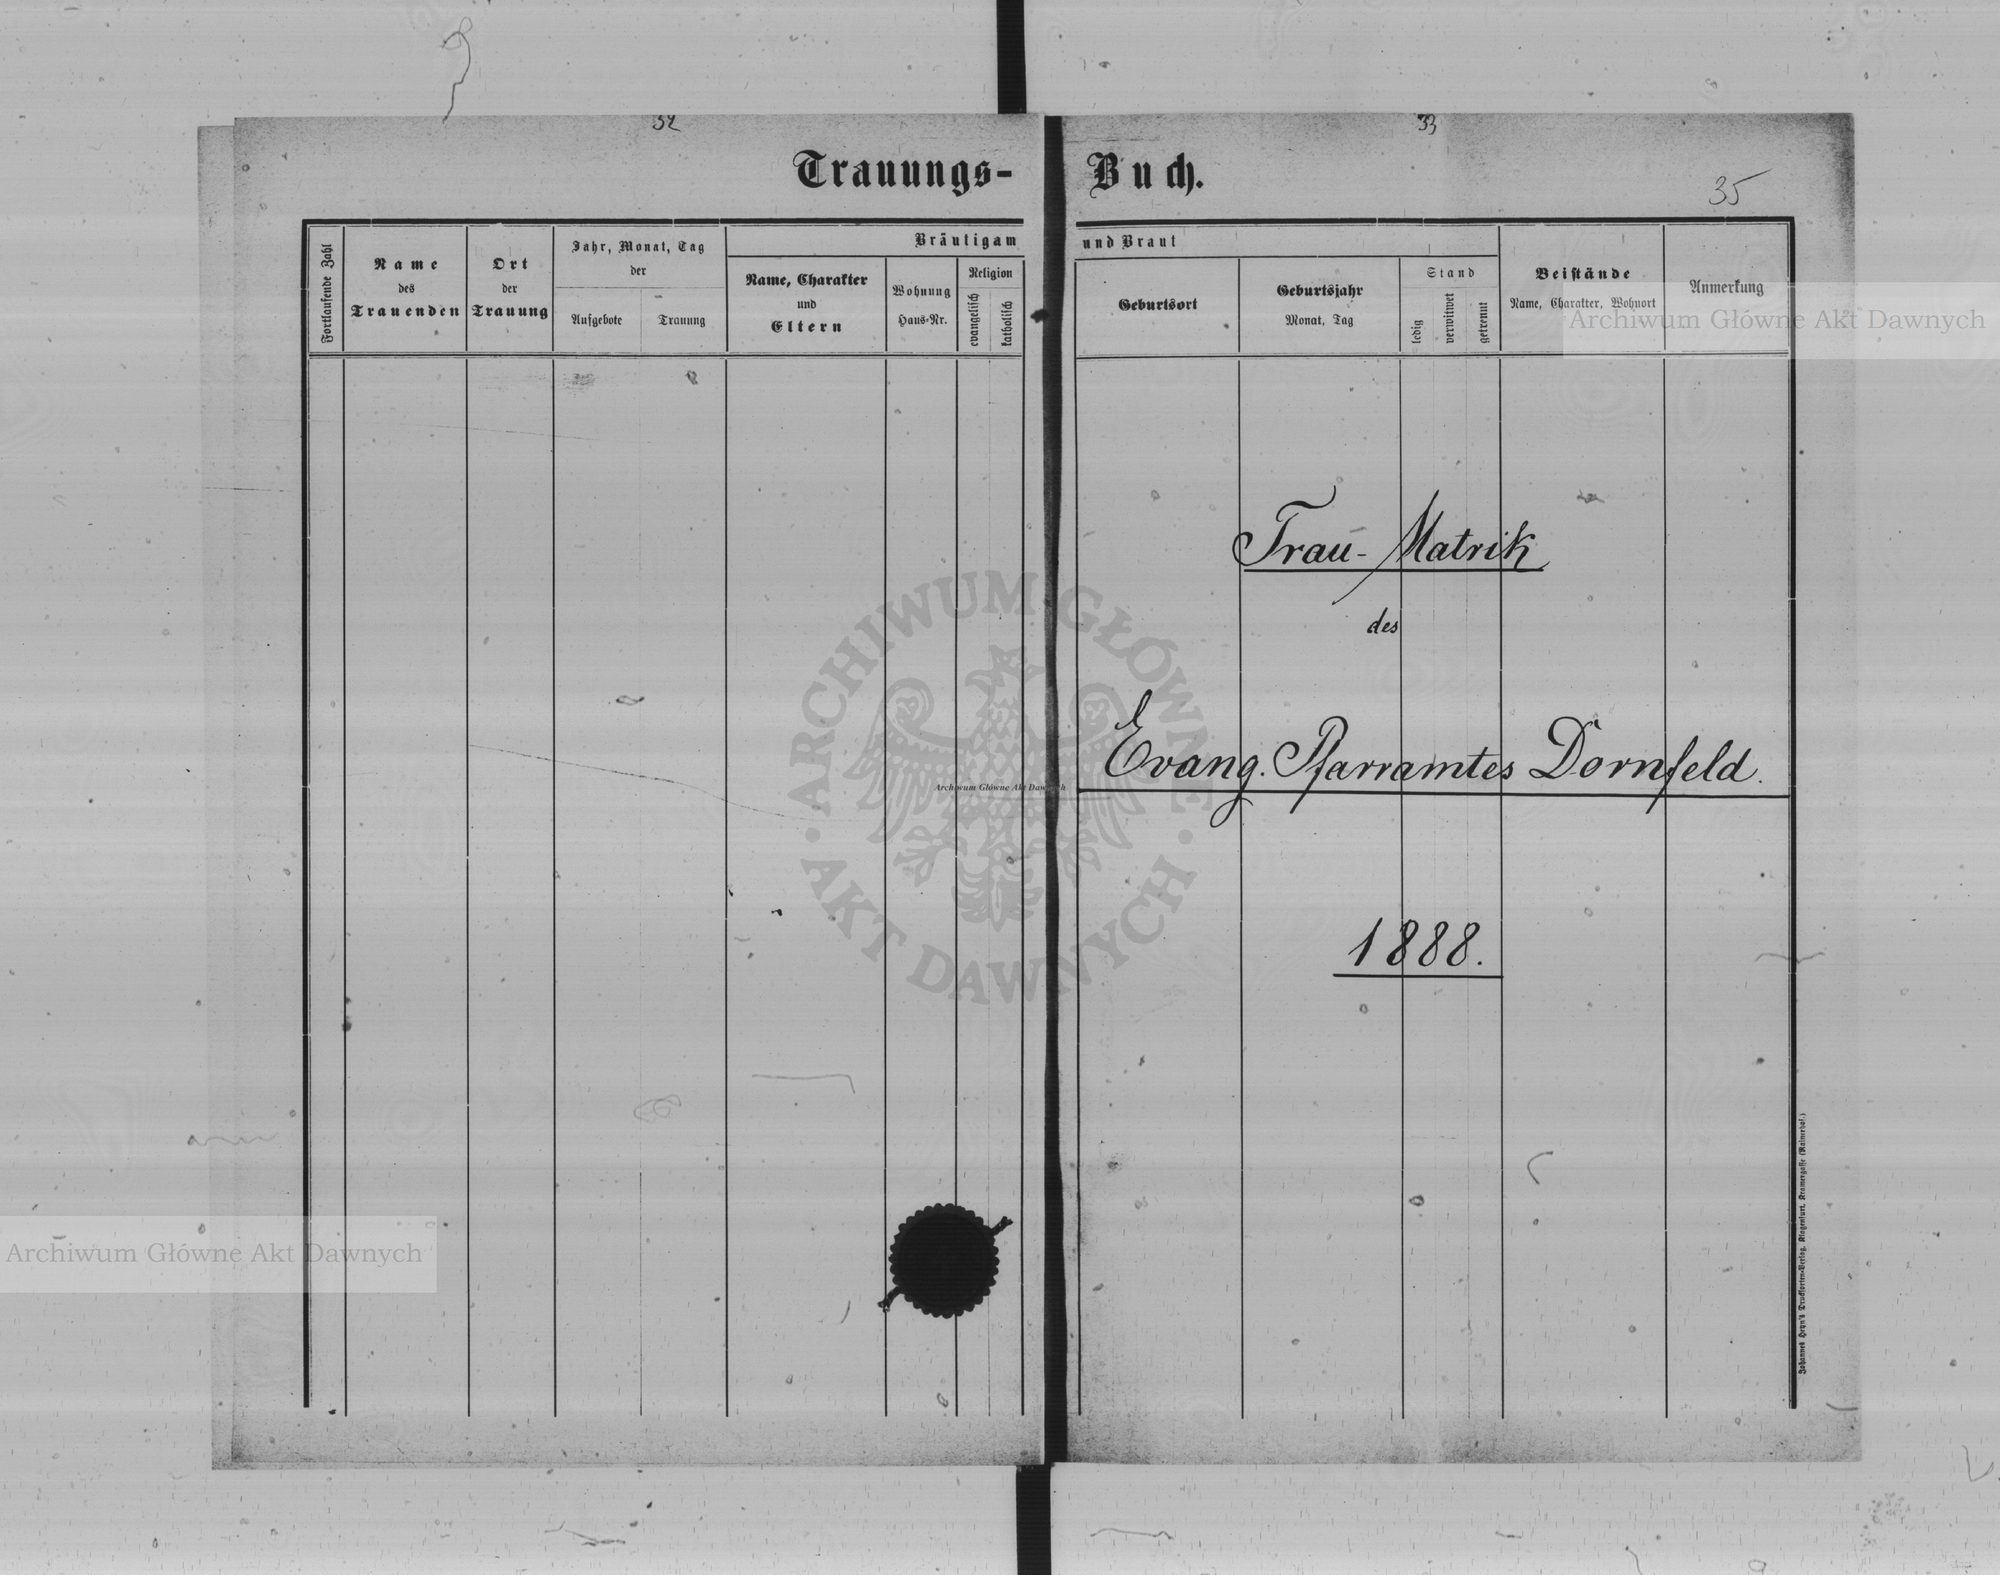 32
33
Trauungs-Buch.
35
Fortlaufende Zahl
Name
des
Trauenden
Ort
der
Trauung
Jahr, Monat, Tag
der
Aufgebote
Trauung
Bräutigam und Braut
Name, Charakter
und
Eltern
Wohnung
Haus-Nr.
Religion
evangelisch
katholisch
Geburtsort
Geburtsjahr
Monat, Tag
Stand
ledig
verwitwet
getrennt
Beistände
Name, Charakter, Wohnort
Anmerkung
Archiwum Główne Akt Dawnych
Trau-Matrik
des
Evang. Pfarramtes Dornfeld.
1888.
ARCHIWUM GŁÓWNE
AKT DAWNYCH
Archiwum Główne Akt Dawnych
Archiwum Główne Akt Dawnych
Johannes Heyn's Drucksorten-Verlag, Klagenfurt, Kramergasse (Rainerhof.)